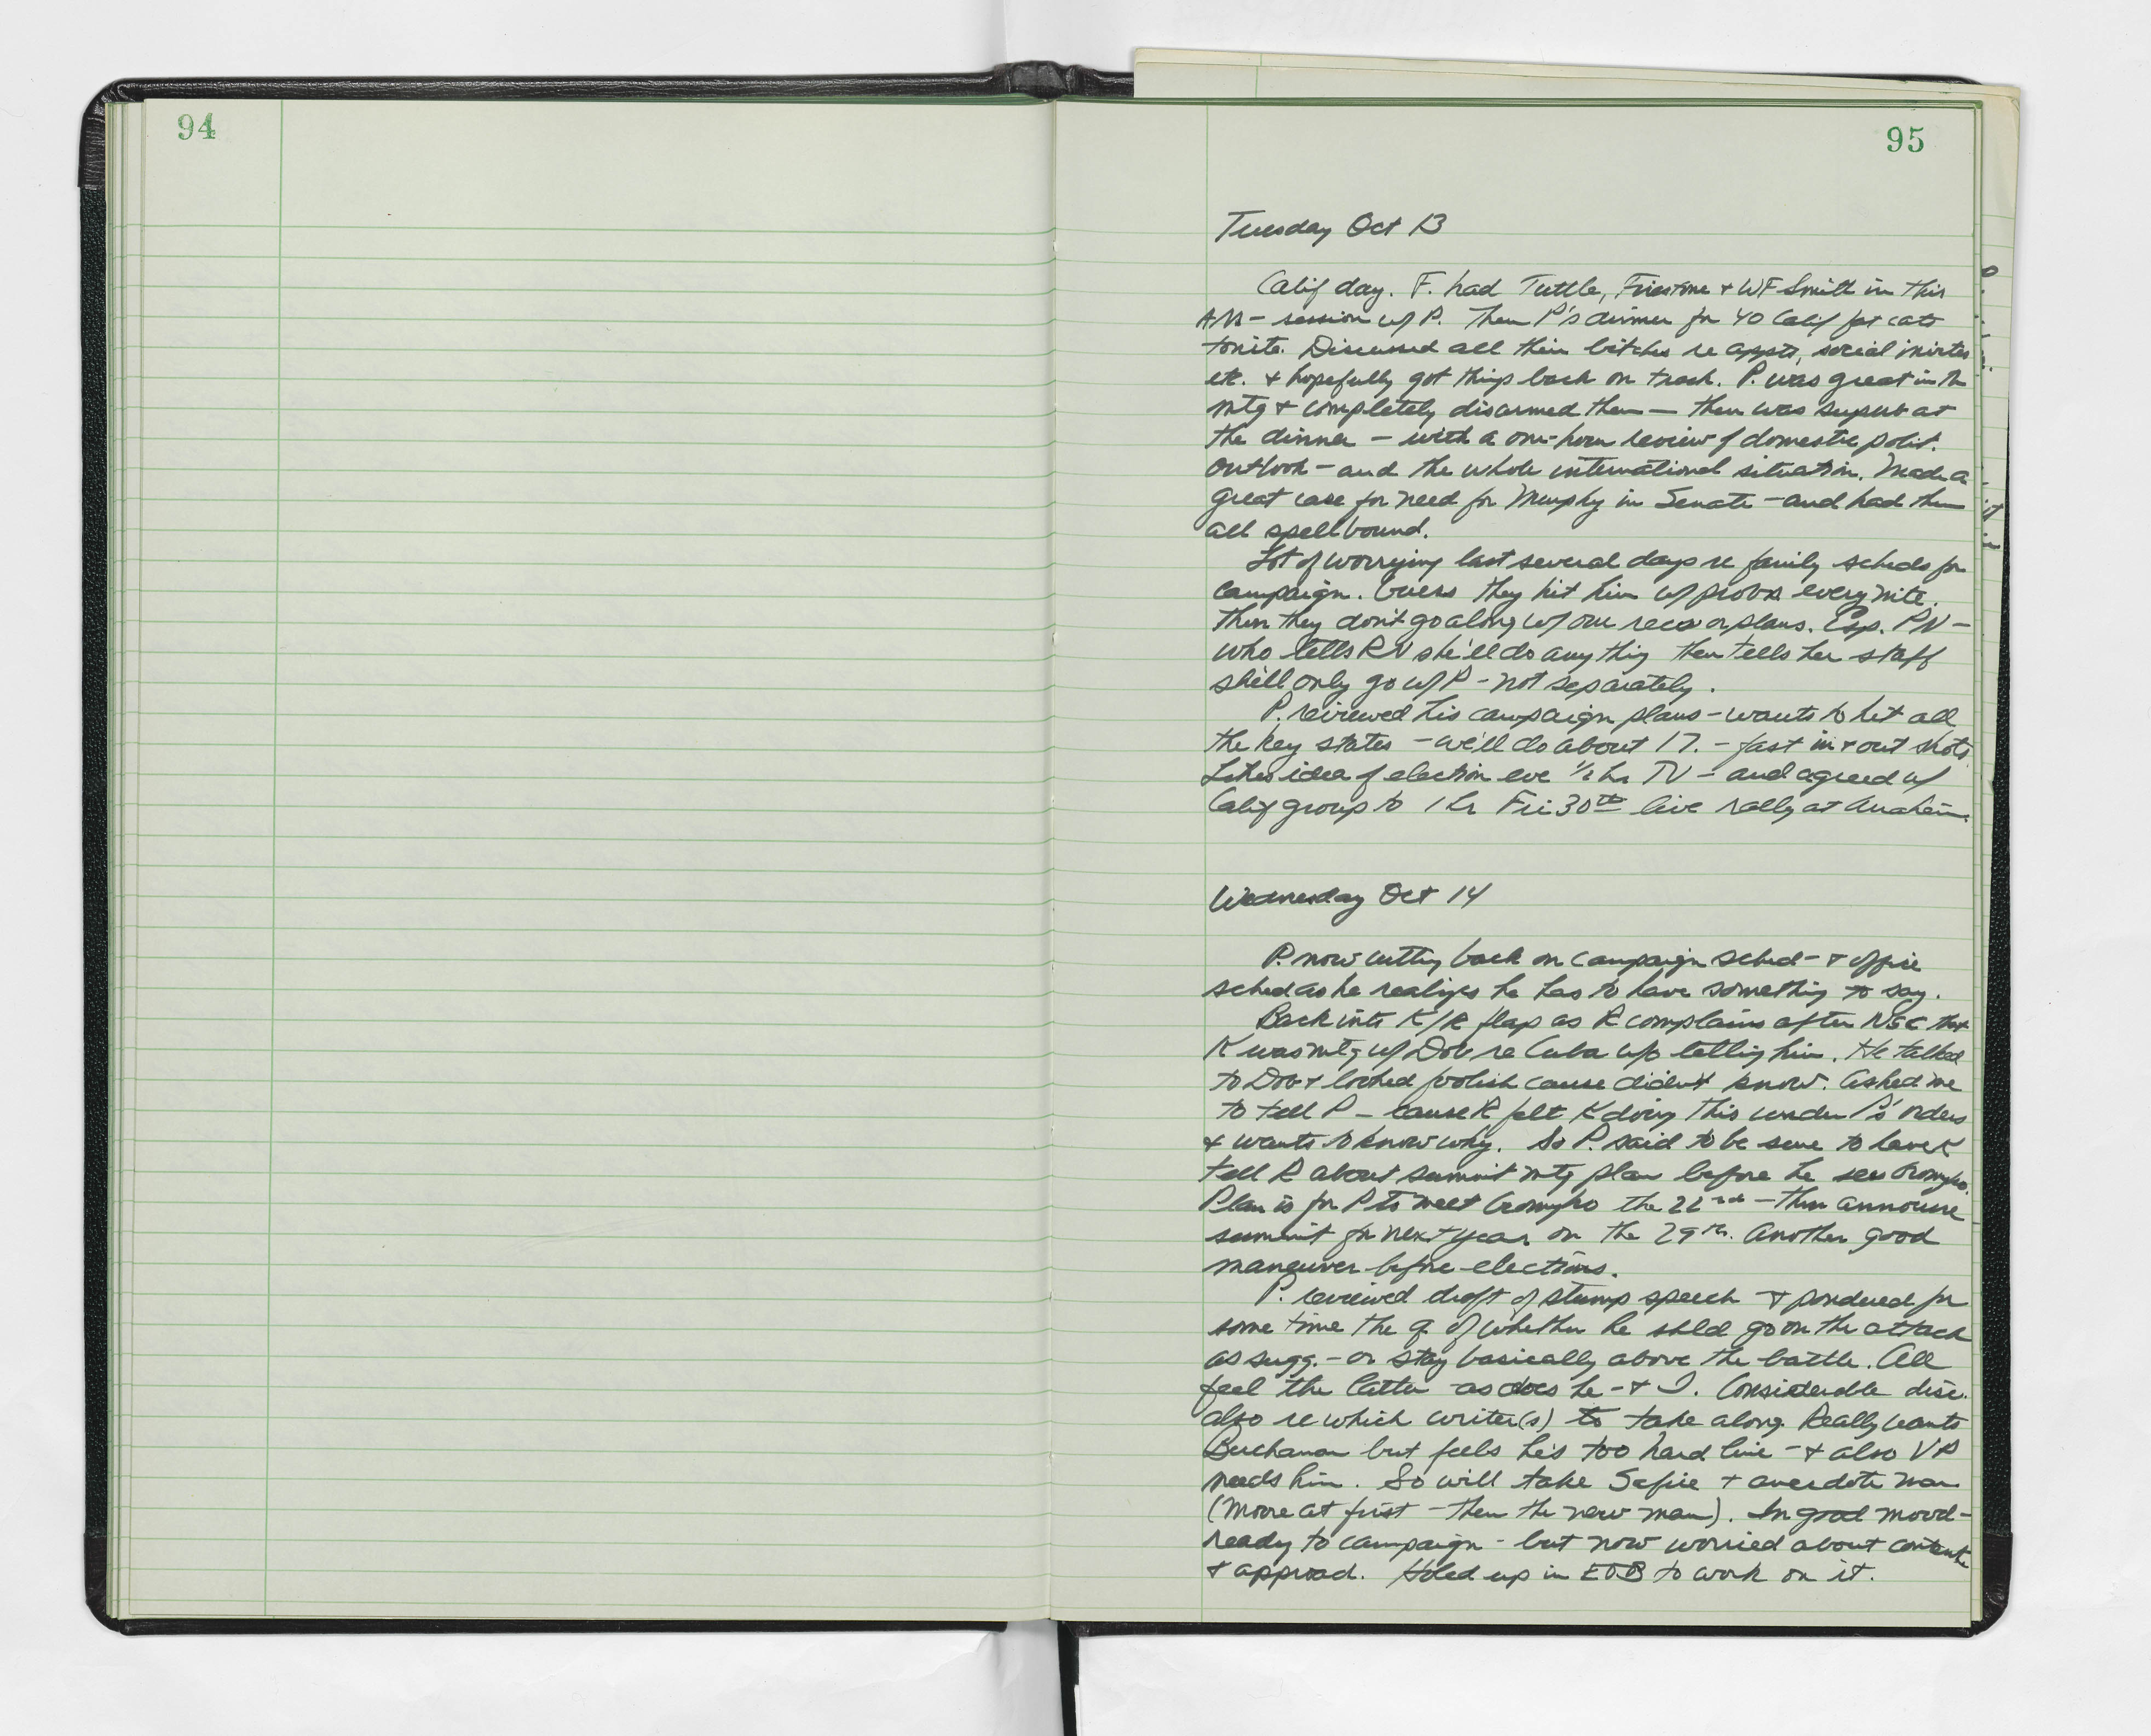 94
95
Tuesday Oct 13
Calif day. F. had Tuttle, Firestone + WF Smith in this
AM - session w/ P. Then P's dinner for 40 Calif fat cats
tonite. Discussed all their bitches re appts, social invites
etc. + hopefully got things back on track. P. was great in the
mtg + completely disarmed them — then was superb at
the dinner - with a one-hour review of domestic polit.
outlook - and the whole international situation. Made a
great case for need for Murphy in Senate - and had them
all spellbound.
Lot of worrying last several days re family scheds for
campaign. Guess they hit him w/ probs every nite.
Then they don't go along w/ our recs or plans. Esp. PN -
who tells RN she'll do anything then tells her staff
she'll only go w/ P - not separately.
P. reviewed his campaign plans - wants to hit all
the key states - we'll do about 17. - fast in + out shots.
Likes idea of election eve 1/2 hr TV - and agreed w/
Calif group to 1 hr Fri 30th live rally at Anaheim.
Wednesday Oct 14
P. now cutting back on campaign sched - + office
sched as he realizes he has to have something to say.
Back into K/R flap as R complains after NSC that
K was mtg w/ Dob re Cuba w/o telling him. He talked
to Dob + looked foolish cause didn't know. Asked me
to tell P - cause R felt K doing this under P's orders
+ wants to know why. So P. said to be sure to have K
tell R about summit mtg plan before he sees Gromyko.
Plan is for P to meet Gromyko the 22nd - then announce
summit for next year on the 29th. Another good
maneuver before elections.
P. reviewed draft of stump speech + pondered for
some time the q. of whether he shld go on the attack
as sugg. - or stay basically above the battle. All
feel the latter - as does he - + I. Considerable disc.
also re which writer(s) to take along. Really wants
Buchanan but feels he's too hard line - + also VP
needs him. So will take Safire + anecdote man
(Moore at first - then the new man). In good mood -
ready to campaign - but now worried about content
+ approach. Holed up in EOB to work on it.